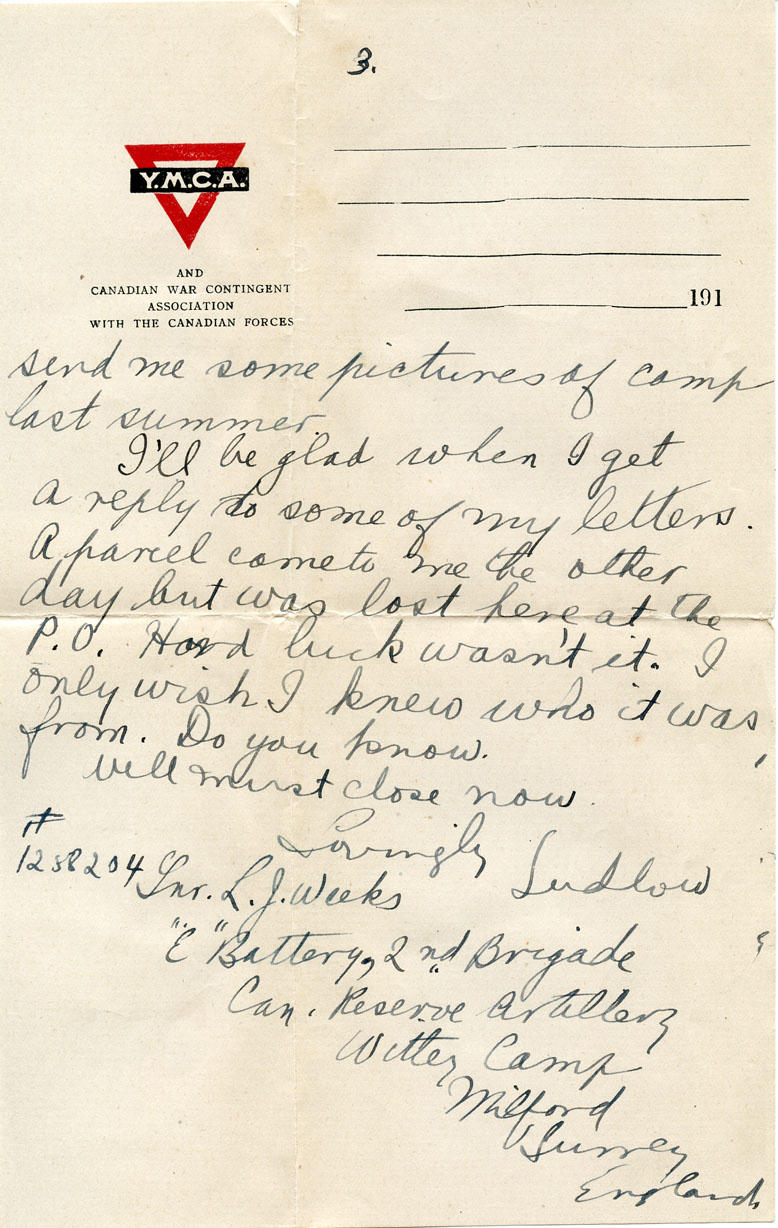 3.
Y.M.C.A.
AND
CANADIAN WAR CONTINGENT
ASSOCIATION
WITH THE CANADIAN FORCES
191
send me some pictures of camp
last summer.
I'll be glad when I get
a reply to some of my letters.
A parcel come to me the other
day but was lost here at the
P.O. Hard luck wasn't it. I
only wish I knew who it was
from. Do you know.
Well must close now.
Lovingly
Ludlow
#
1258204 Gnr. L. J. Weeks
"C" Battery, 2nd Brigade
Can. Reserve Artillery
Witley Camp
Milford
Surrey
England.